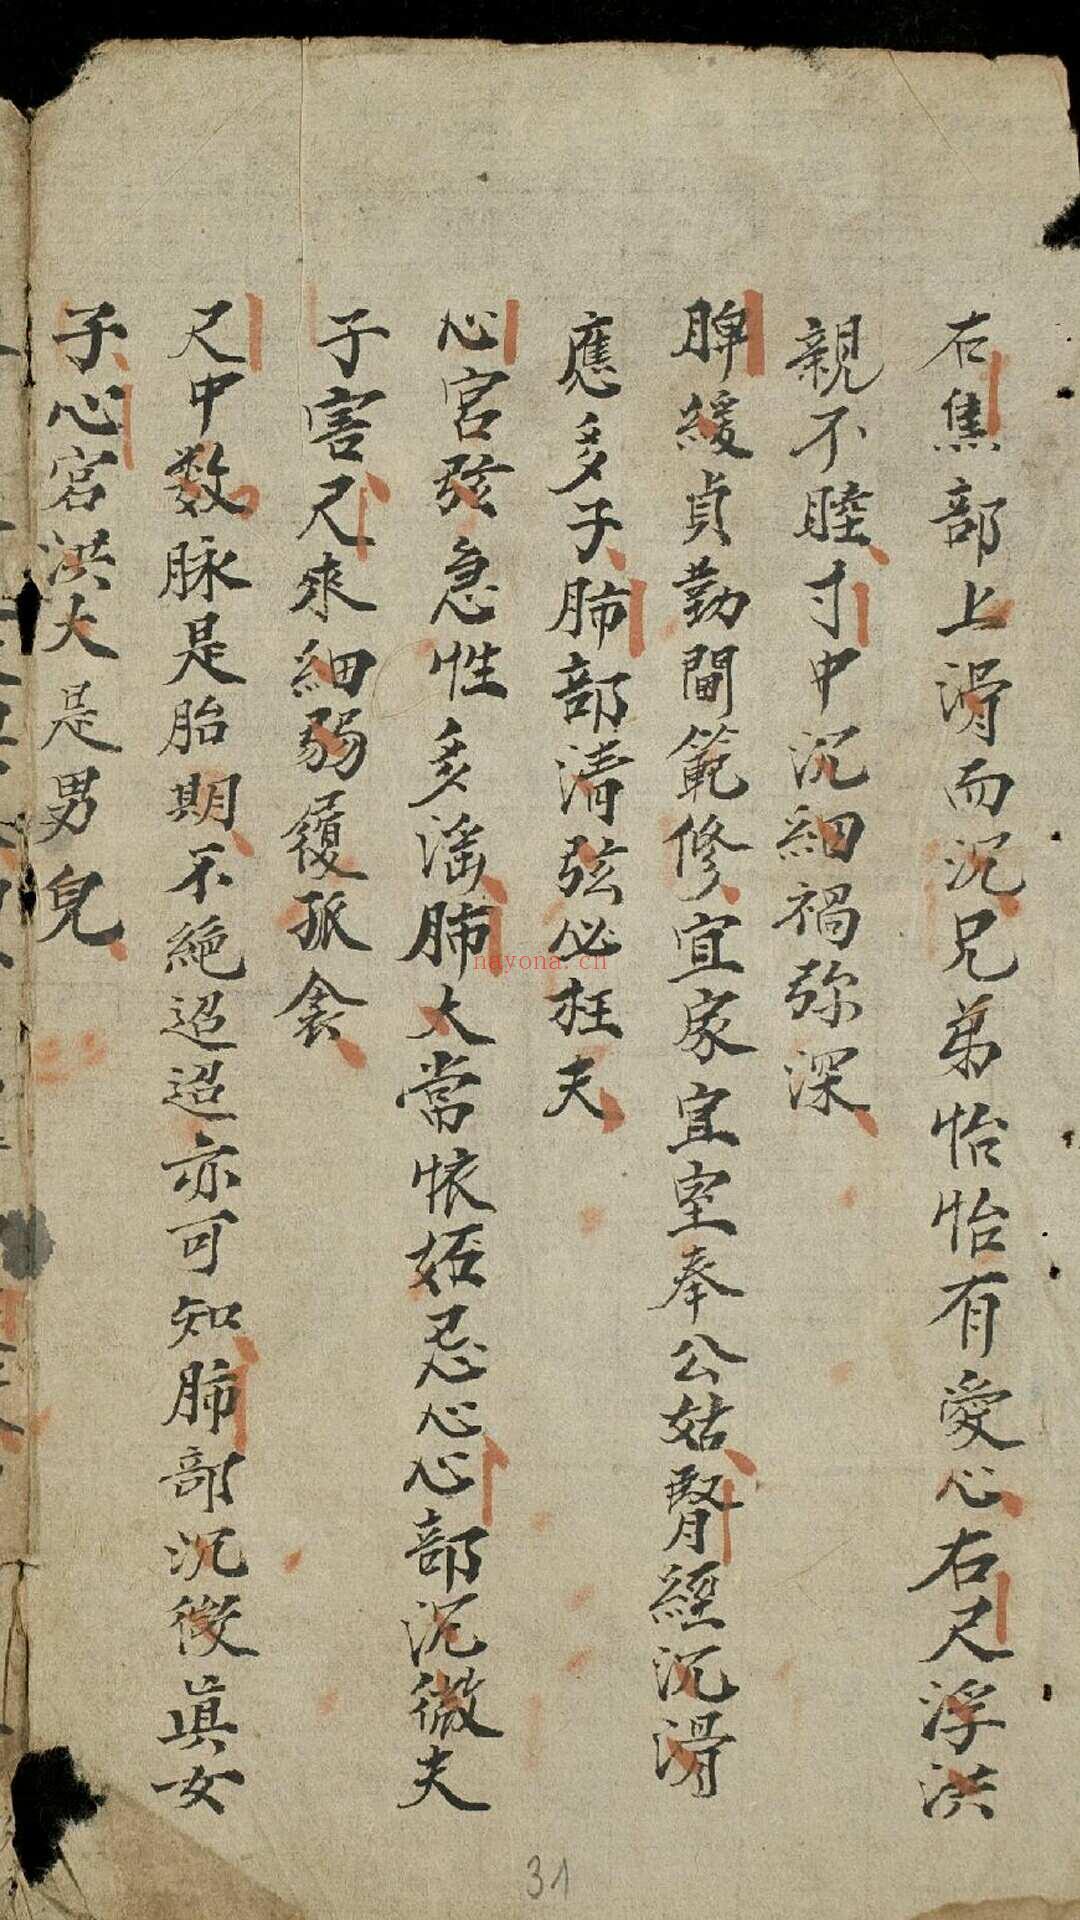 右焦部上滑而沉兄弟怡怡有愛心右尺浮洪
親不睦寸中沉細禍弥深
脾緩貞勤閫範修宜家宜室奉公姑腎經沉滑
應多子肺部清弦必枉夫
心宮弦急性多滛肺大當懷妬忌心心部沉微夫
子害尺來細弱履孤衾
尺中数脉是胎期不絕迢迢亦可知肺部沉微眞女
子心宮洪大是男兒
nayona.cn
31